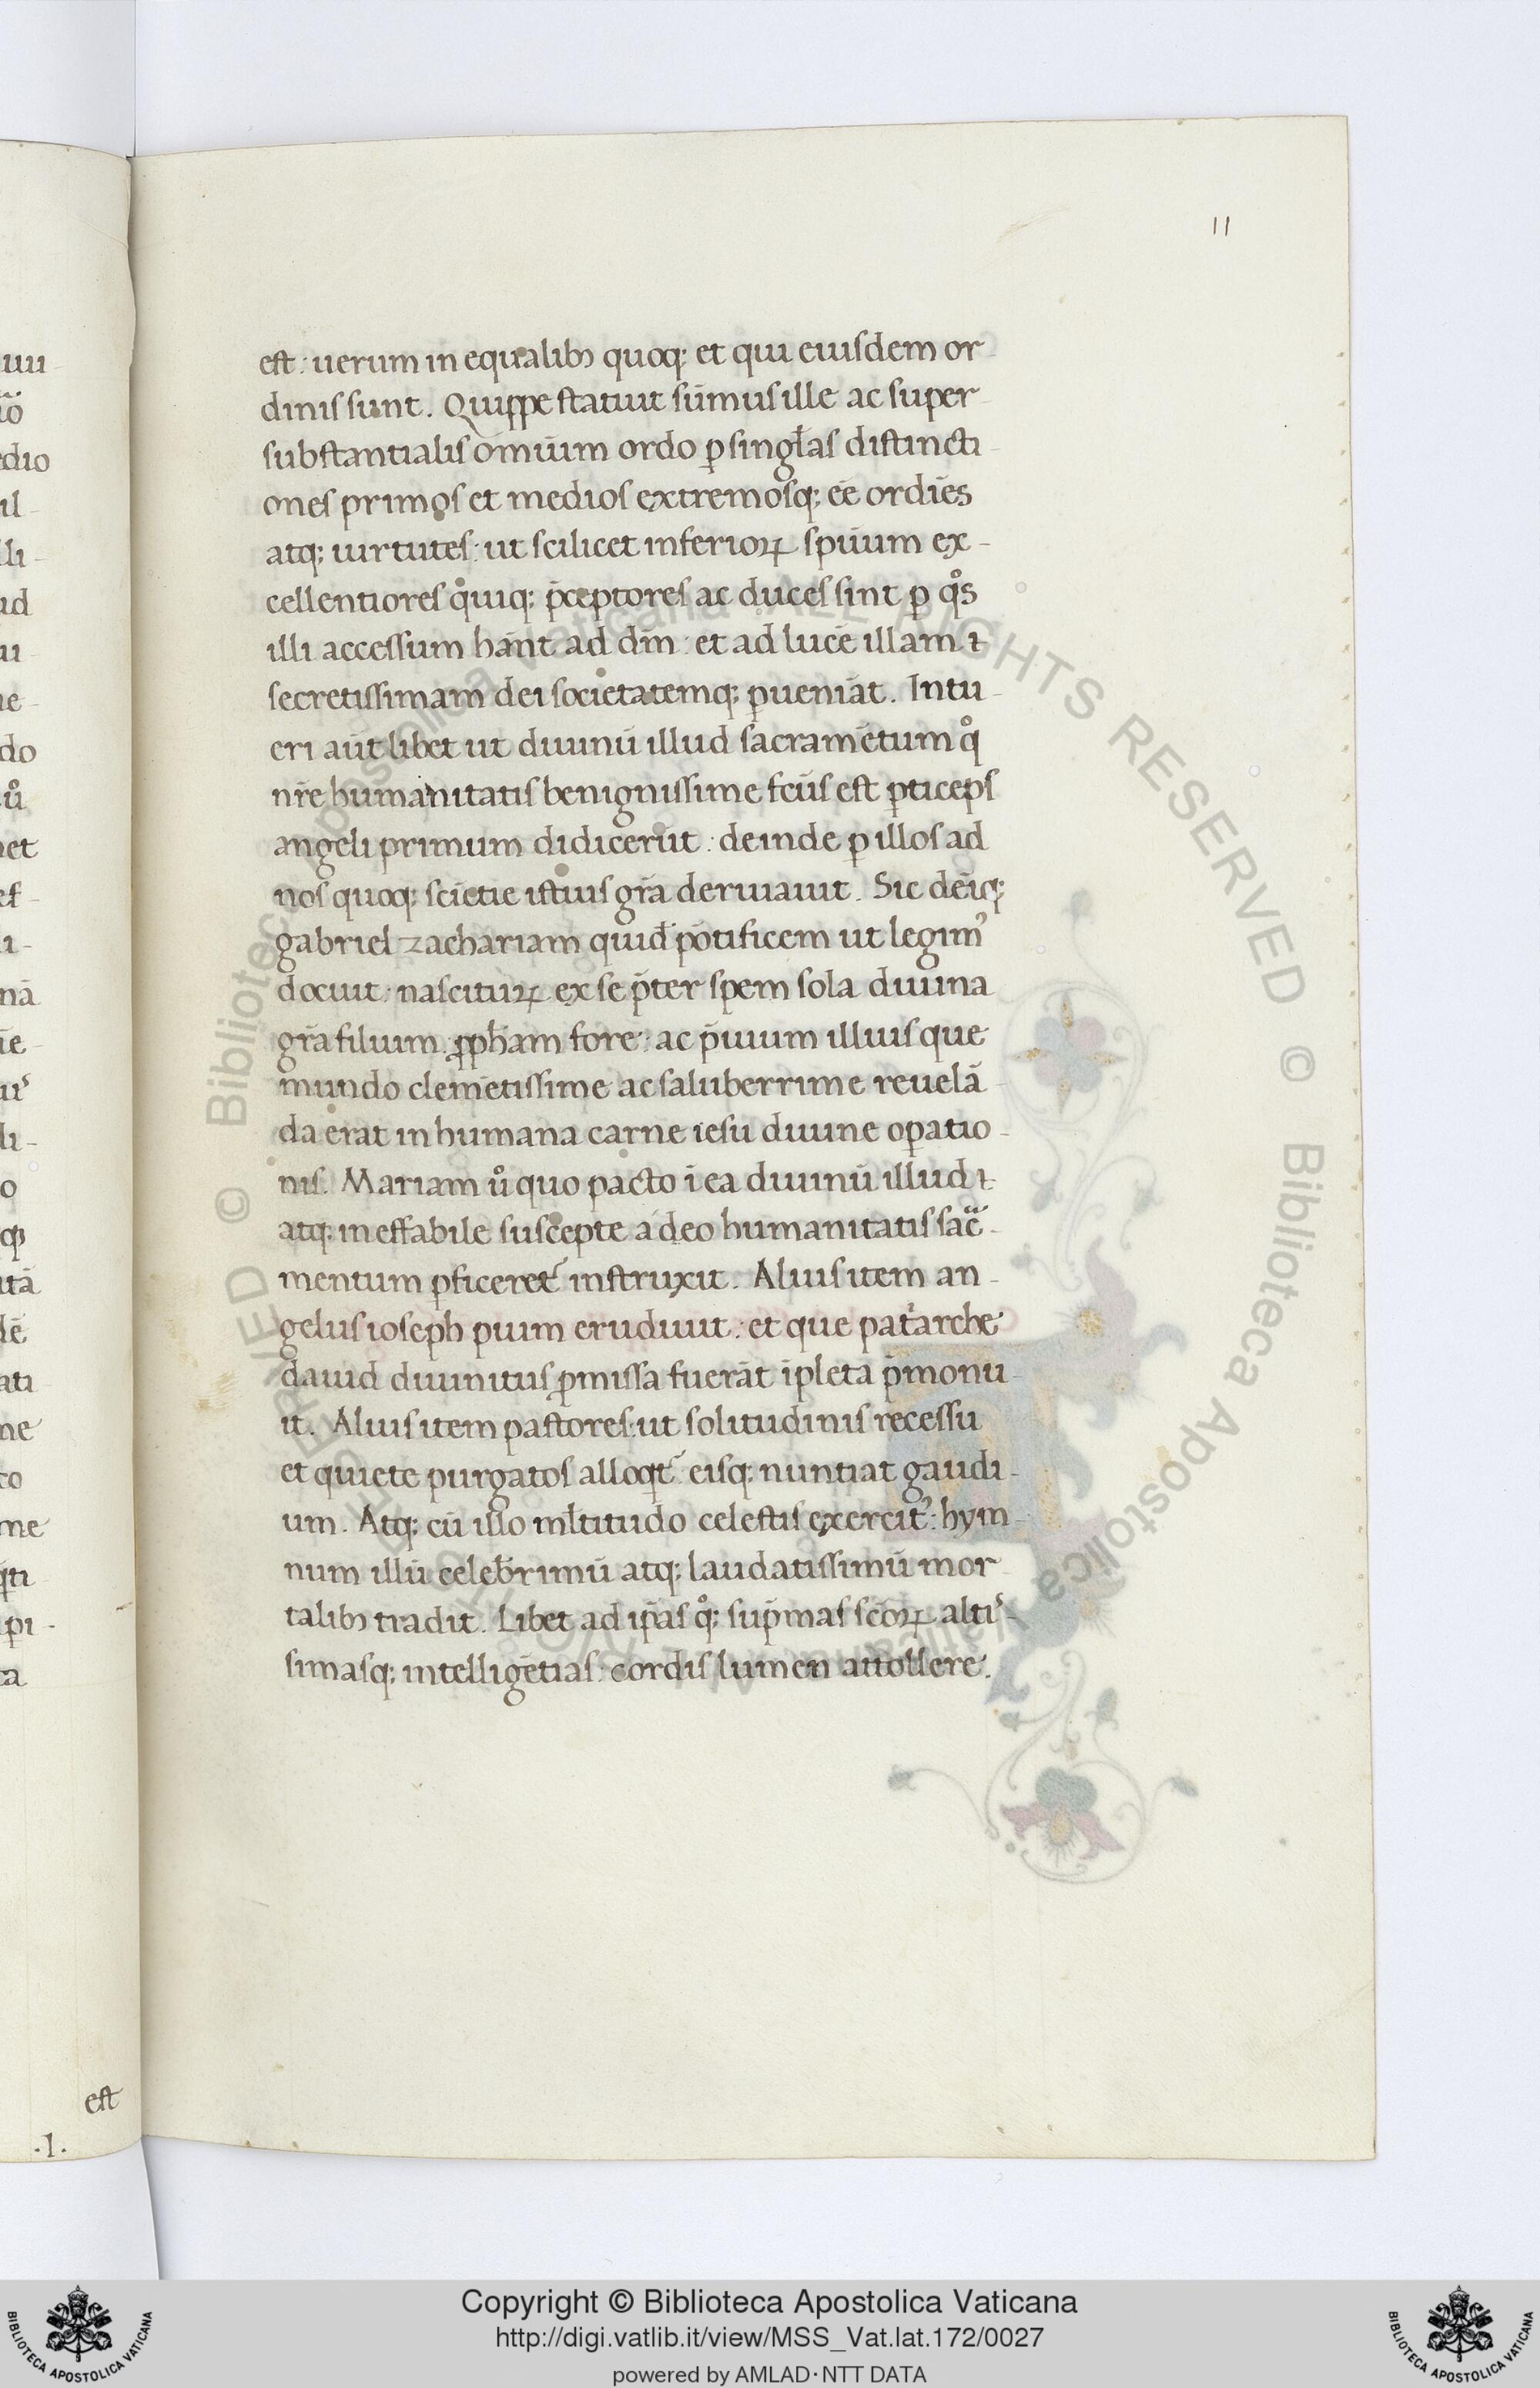 11
est: uerum in equalibꝫ quoqꝫ et qui eiusdem or
dinis sunt. Quippe statuit sūmus ille ac super
substantialis omiūm ordo ꝑ singłas distincti
ones primos et medios extremosqꝫ eē ordiēs
atqꝫ uirtutes: ut scilicet inferioꝝ spūum ex-
cellentiores qͦuiqꝫ p̄ceptores ac duces sint ꝑ qͦs
illi accessum hānt ad dm̄: et ad lucē illam ⁊
secretissimam dei societatemqꝫ ꝑueniāt. Intu
eri aūt libet ut diuinū illud sacramētum qͦ
nr̄e humanitatis benignissime fcūs est ꝑticeps
angeli primum didicerūt: deinde ꝑ illos ad
nos quoqꝫ sciētie istius gr̄a deriuauit. Sic dēiqꝫ
gabriel zachariam quid̄ pōtificem ut legimꝰ
docuit: nascituꝝ ex se p̄ter spem sola diuina
gr̄a filium ꝓph̄am fore: ac p̄uium illius que
mundo clemētissime ac saluberrime reuelā
da erat in humana carne iesu diuine oꝑatio
nis. Mariam uͦ quo pacto ī ea diuinū illud ⁊
atqꝫ ineffabile suscepte a deo humanitatis sac̄
mentum ꝑficeret᷑ instruxit. Alius item an-
gelus ioseph pium erudiuit: et que patͥarche
dauid diuinitus ꝓmissa fuerāt īpleta p̄monu
it. Alius item pastores: ut solitudinis recessu
et quiete purgatos alloqt᷑: eisqꝫ nuntiat gaudi-
um. Atqꝫ cū illo ml̄titudo celestis exercitꝰ: hym
num illū celeb̄rimū atqꝫ laudatissimū mor
talibꝫ tradit. Libet ad ip̄as qͦꝫ sup̄mas scōꝝ altiˢ-
simasqꝫ intelligētias: cordis lumen attollere.
est
.1.
Copyright © Biblioteca Apostolica Vaticana
http://digi.vatlib.it/view/MSS_Vat.lat.172/0027
powered by AMLAD·NTT DATA
BIBLIOTECA APOSTOLICA VATICANA
BIBLIOTECA APOSTOLICA VATICANA
© Biblioteca Apostolica Vaticana ALL RIGHTS RESERVED © Biblioteca Apostolica Vaticana ALL RIGHTS RESERVED